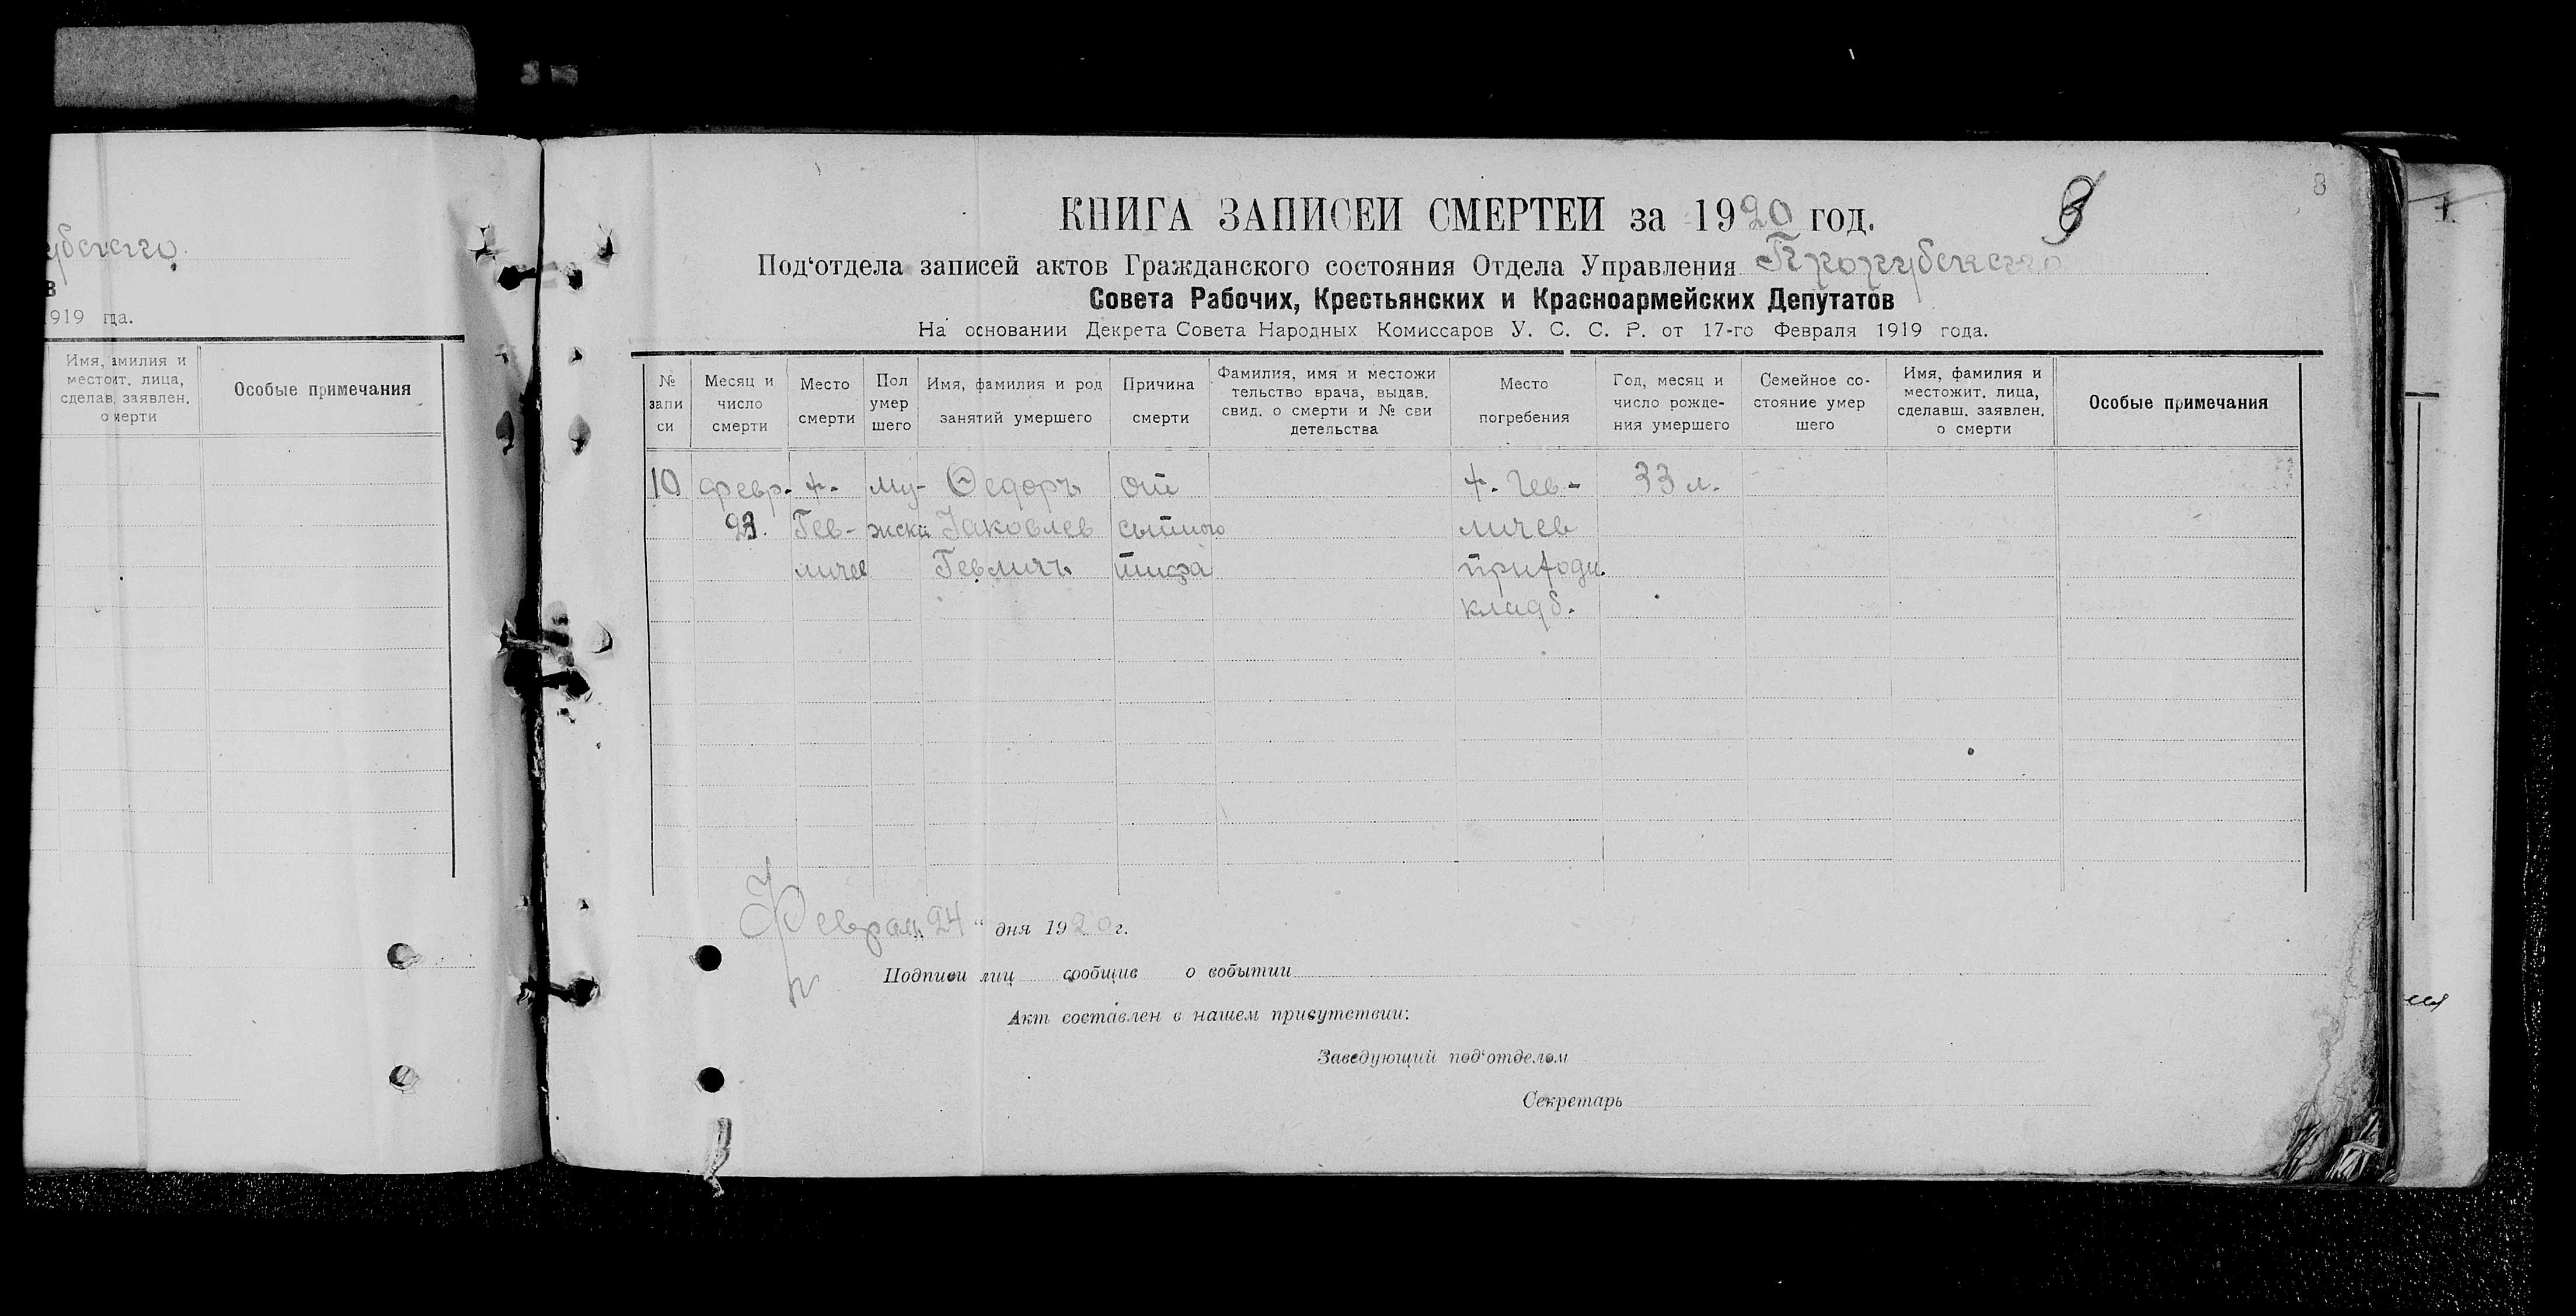 убского
в
1919 года.
Имя, фамилия и
местожит. лица,
сделав. заявлен.
о смерти
Особые примечания
8
8
КНИГА ЗАПИСЕЙ СМЕРТЕЙ за 1920 год.
Под‘отдела записей актов Гражданского состояния Отдела Управления
Совета Рабочих, Крестьянских и Красноармейских Депутатов
На основании Декрета Совета Народных Комиссаров У. С. С. Р. от 17-го Февраля 1919 года.
№ запи си
Месяц и число смерти
Место смерти
Пол умер шего
Имя, фамилия и род занятий умершего
Причина смерти
Фамилия, имя и местожи тельство врача, выдав. свид. о смерти и № сви детельства
Место погребения
Год, месяц и число рожде- ния умершего
Семейное со- стояние умер шего
Имя, фамилия и местожит. лица, сделавш. заявлен. о смерти
Особые примечания
10 февр. х. му- Ѳедоръ от х. Гев- 33 л.
23. Гев- жски Іаковлев сыпного личев
личев Гевличъ тифа приходн.
кладб.
Февраль „24“ дня 1920 г.
Подписи лиц сообщив о событии
Акт составлен в нашем присутствии:
Заведующий под‘отделом
Секретарь